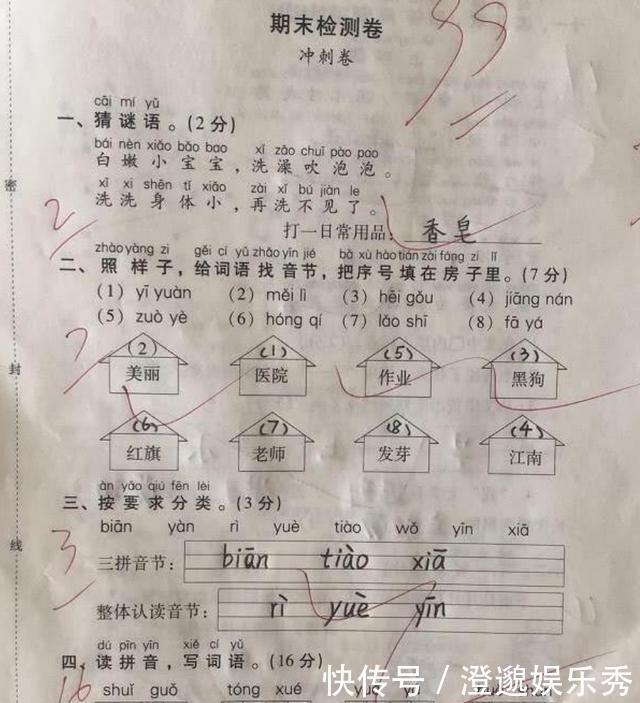 期末检测卷
99
冲刺卷
cāi mí yǔ
一、猜谜语。(2分)
bái nèn xiǎo bǎo bao xǐ zǎo chuī pào pao
白嫩小宝宝，洗澡吹泡泡。
xǐ xi shēn tǐ xiǎo zài xǐ bú jiàn le
洗洗身体小，再洗不见了。
2
打一日常用品：香皂
zhào yàng zi gěi cí yǔ zhǎo yīn jié bǎ xù hào tián zài fáng zi lǐ
二、照样子，给词语找音节，把序号填在房子里。(7分)
(1) yī yuàn (2) měi lì (3) hēi gǒu (4) jiāng nán
(5) zuò yè (6) hóng qí (7) lǎo shī (8) fā yá
7
(2) (1) (5) (3)
美丽 医院 作业 黑狗
(6) (7) (8) (4)
红旗 老师 发芽 江南
àn yāo qiú fēn lèi
三、按要求分类。(3分)
biān yàn rì yuè tiào wǒ yīn xiā
3
三拼音节： biān tiào xiā
整体认读音节： rì yuè yīn
dú pīn yīn xiě cí yǔ
四、读拼音，写词语。(16分)
16
shuǐ guǒ tóng xué
快传号 / 澄邈娱乐秀
密
封
线